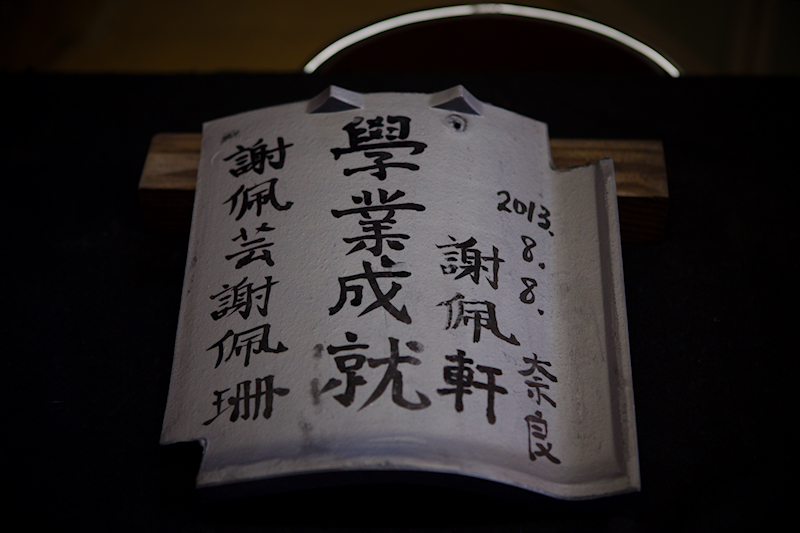 2013.8.8.奈良
謝佩軒
學業成就
謝佩芸謝佩珊